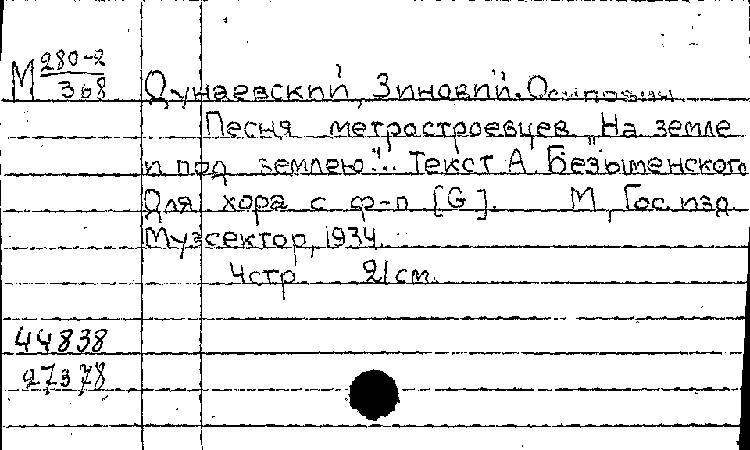 М 280-2
368
Дунаевский, Зиновий Осипович
Песня метростроевцев „На земле
и под землею"... Текст А. Безыменского
Для хора с ф-п [G]. М, Гос. изд.
Музсектор, 1934.
4стр. 21см.
44838
27378